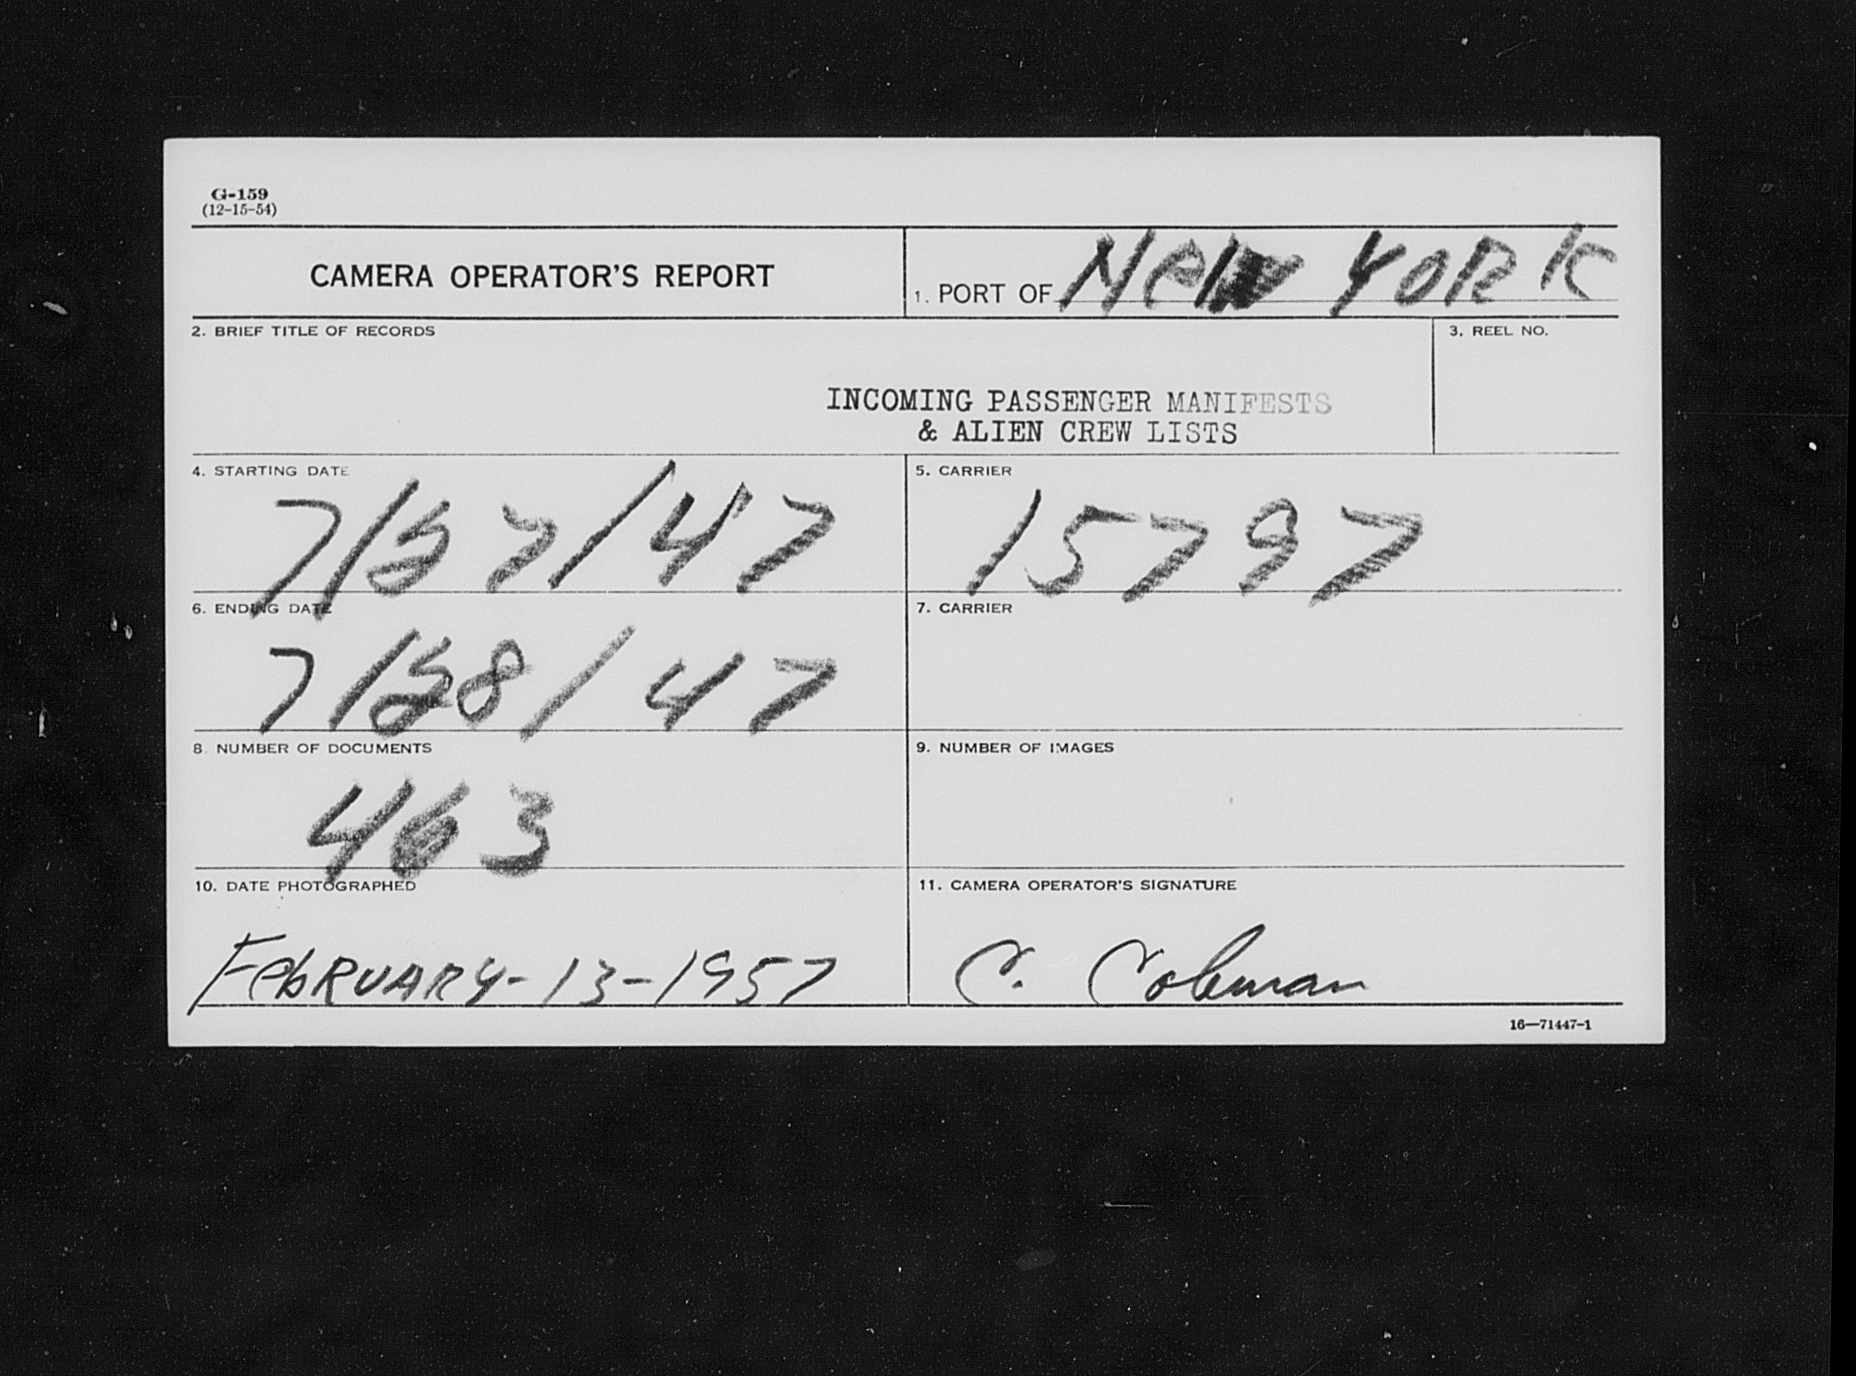 G-159
(12-15-54)
CAMERA OPERATOR'S REPORT
1. PORT OF NEW YORK
2. BRIEF TITLE OF RECORDS
3. REEL NO.
INCOMING PASSENGER MANIFESTS
& ALIEN CREW LISTS
4. STARTING DATE
7/27/47
5. CARRIER
15797
6. ENDING DATE
7/28/47
7. CARRIER
8. NUMBER OF DOCUMENTS
463
9. NUMBER OF IMAGES
10. DATE PHOTOGRAPHED
FebRUARY-13-1957
11. CAMERA OPERATOR'S SIGNATURE
C. Coleman
16—71447-1